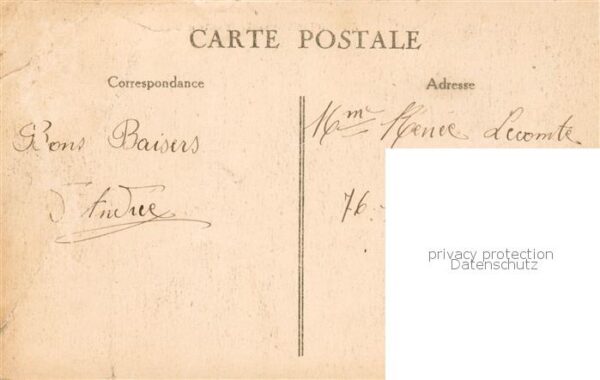 CARTE POSTALE
Correspondance
Adresse
Bons Baisers
d'Andrée
Mme Lecomte
76
privacy protection
Datenschutz